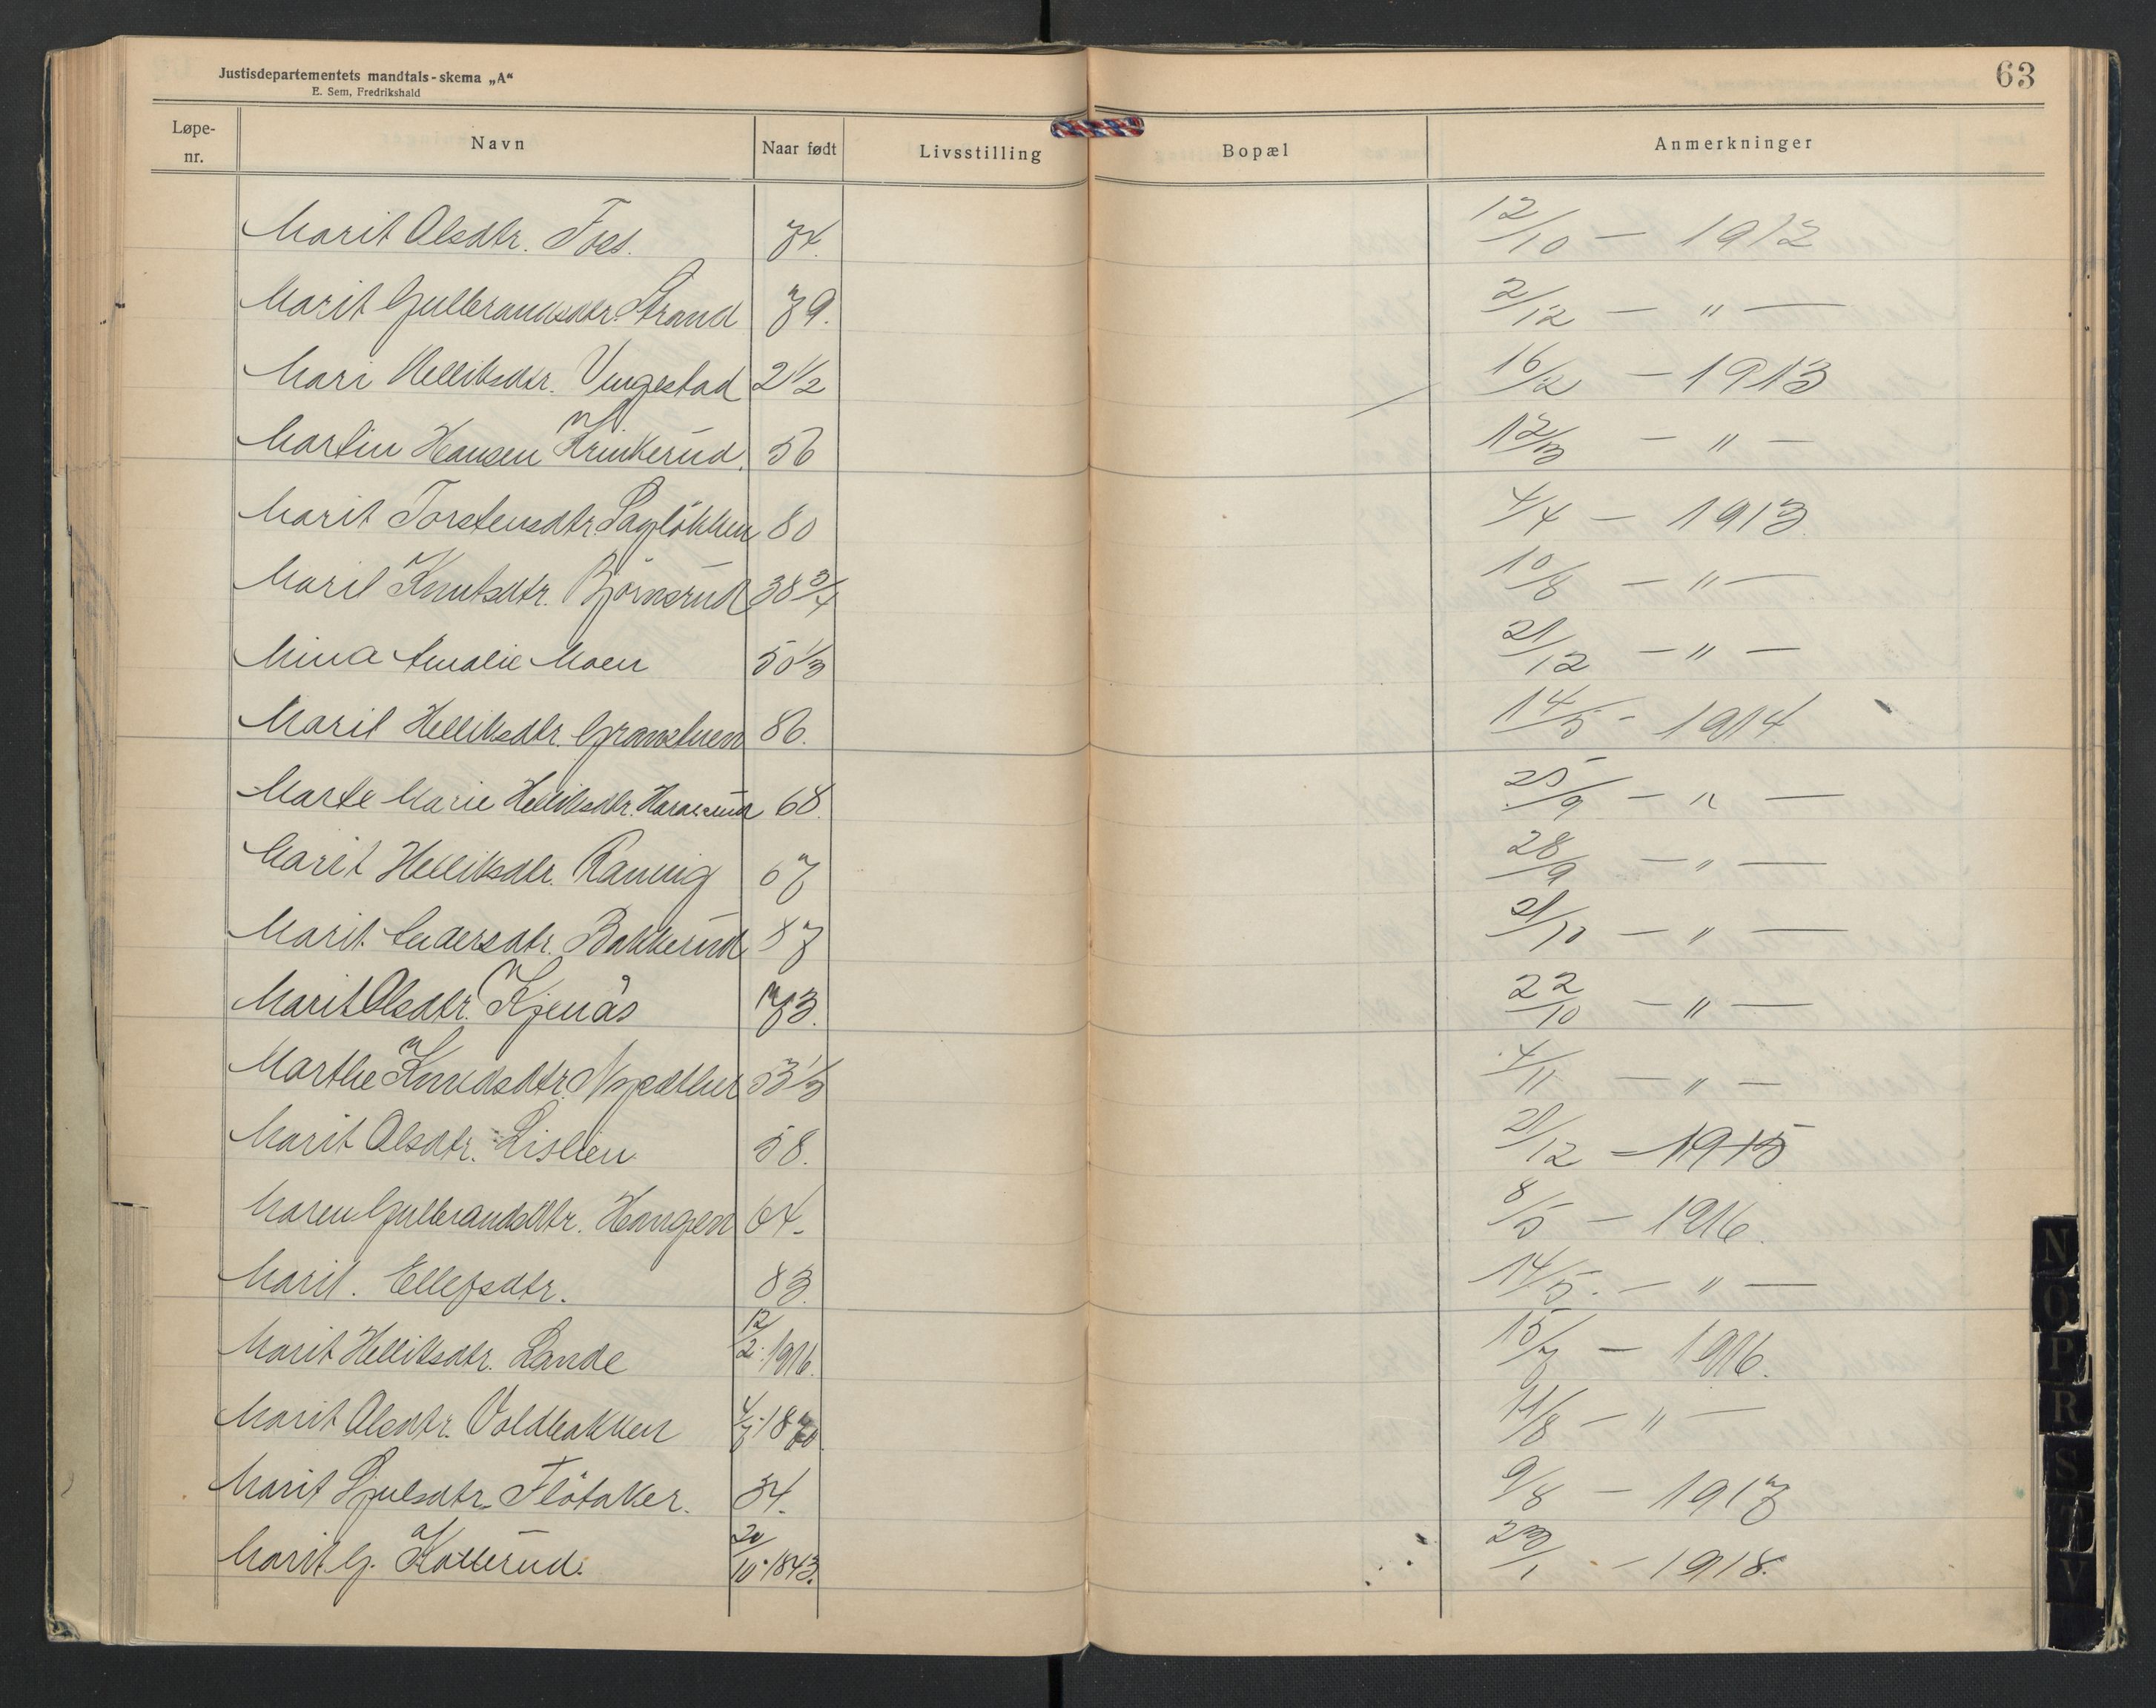 Justisdepartementets mandtals-skema „A“
E. Sem, Fredrikshald
63
Løpe-nr. Navn Naar født Livsstilling Bopæl Anmerkninger
Marit Olsdtr. Foss. 74. 12/10 — 1912
Marit Gulbrandsdtr. Strand 79. 2/12 — " —
Mari Helliksdtr. Vingestad 2 1/2 16/2 — 1913
Martin Hansen 56 12/3 — " —
Marit Torstensdtr.Lagløkken 80 4/4 — 1913
Marit Knutsdtr. Bjørnsrud 38 3/4 10/8 — " —
Mina Amalie Moen 50 1/3 21/12 — " —
Marit Helliksdtr. Granstuen 86. 14/5 - 1914
Marte Marie Helliksdtr. 68. 25/9 — " —
Marit Helliksdtr. Ramvig 67 28/9 — " —
Marit Andersdtr. Bakkerud 87 21/10 — " —
Marit Olsdtr. Kjenås 73. 22/10 — " —
Marthe Knudsdtr. 53 1/3 4/11 — " —
Marit Olsdtr. Lislien 58. 21/12 — 1915
Maren Gulbrandsdtr. Haugen 64. 8/5 — 1916.
Marit. Ellefsdtr. 83. 14/5. — " —
Marit Helliksdtr. Lande 12/2. 1916. 15/7 — 1916.
Marit Olsdtr. Voldbakken 4/7.1870 11/8 — " —
Marit Gjulsdtr. Fløtaker. 34. 9/8 — 1917
Marit G. Kollerud. 20/10.1843. 23/1 — 1918.
N
O
P
R
S
T
V